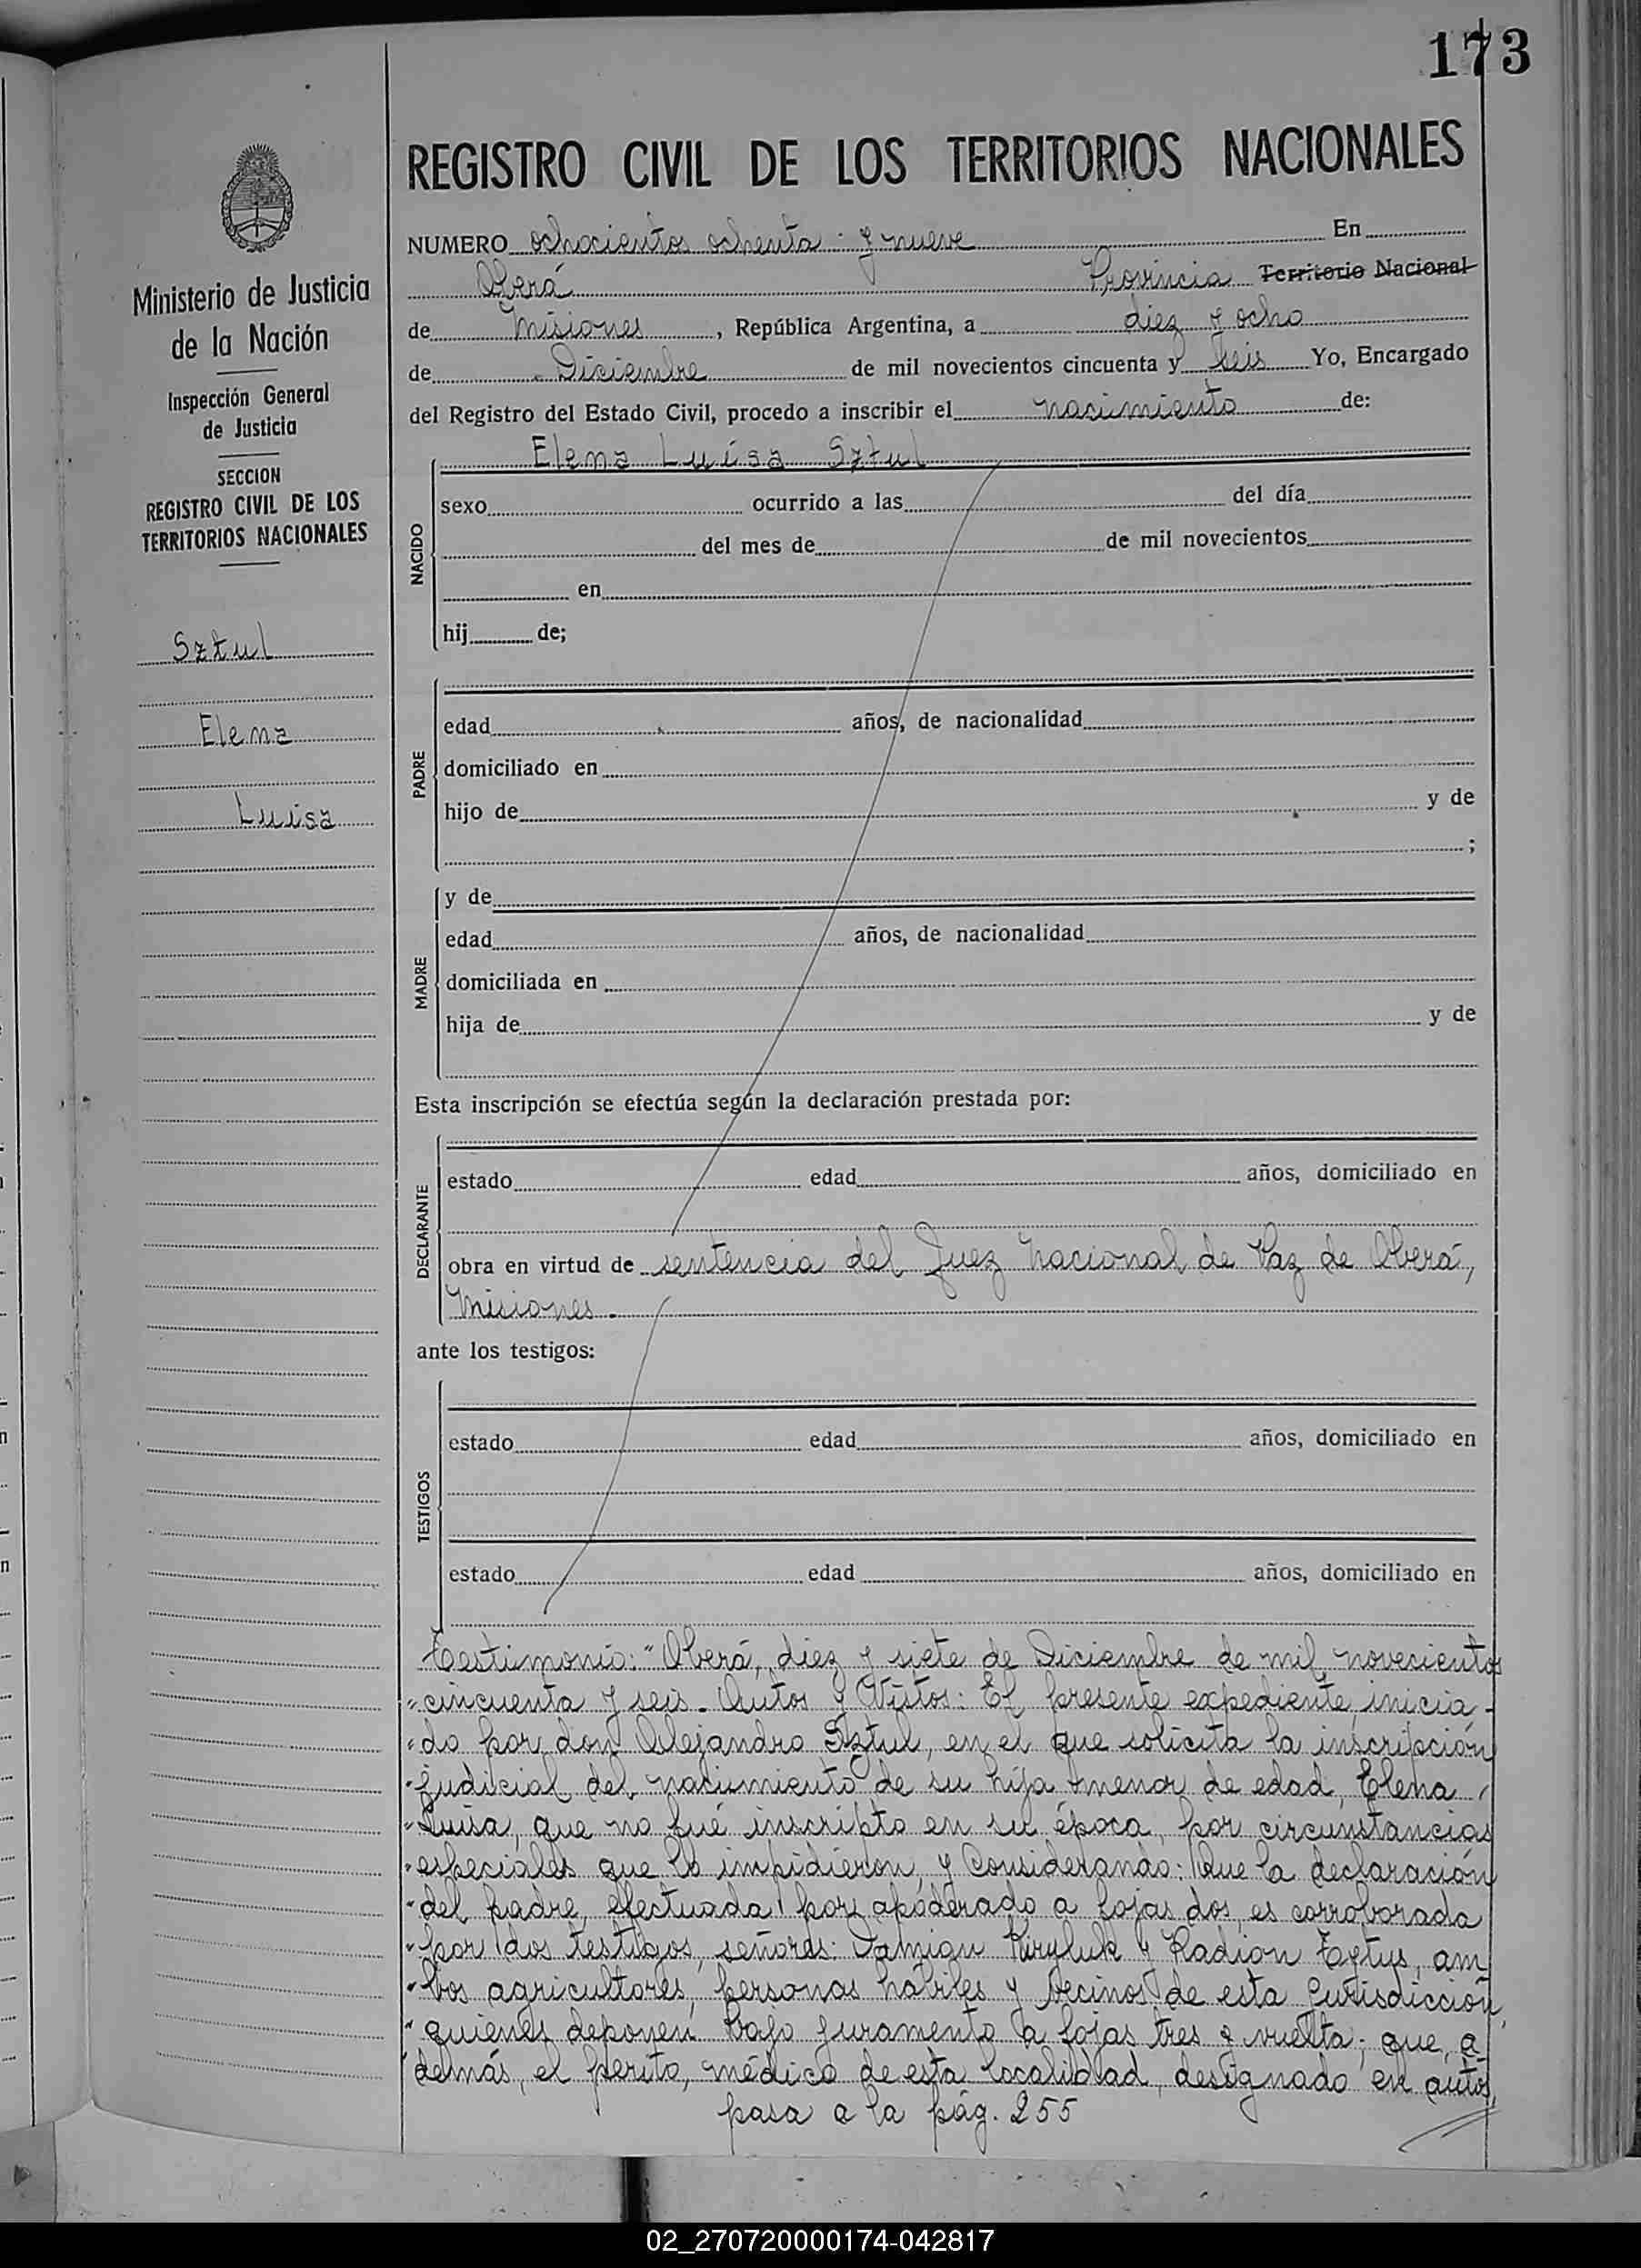 173
REGISTRO CIVIL DE LOS TERRITORIOS NACIONALES
Ministerio de Justicia
de la Nación
Inspección General
de Justicia
SECCION
REGISTRO CIVIL DE LOS
TERRITORIOS NACIONALES
Sztul
Elena
Luisa
NUMERO ochocientos ochenta y nueve En
Oberá Provincia Territorio Nacional
de Misiones, República Argentina, a diez y ocho
de Diciembre de mil novecientos cincuenta y seis Yo, Encargado
del Registro del Estado Civil, procedo a inscribir el nacimiento de:
Elena Luisa Sztul
NACIDO
sexo ocurrido a las del día
del mes de de mil novecientos
en
hij de;
PADRE
edad años, de nacionalidad
domiciliado en
hijo de y de
;
MADRE
y de
edad años, de nacionalidad
domiciliada en
hija de y de
Esta inscripción se efectúa según la declaración prestada por:
DECLARANTE
estado edad años, domiciliado en
obra en virtud de sentencia del Juez Nacional de Paz de Oberá,
Misiones.
ante los testigos:
TESTIGOS
estado edad años, domiciliado en
estado edad años, domiciliado en
Testimonio: "Oberá, diez y siete de Diciembre de mil novecientos
"cincuenta y seis. Autos y Vistos: El presente expediente inicia-
"do por don Alejandro Sztul, en el que solicita la inscripción
"judicial del nacimiento de su hija menor de edad, Elena
"Luisa, que no fué inscripto en su época, por circunstancias
"especiales que lo impidieron, y Considerando: Que la declaración
"del padre, efectuada por apoderado a fojas dos, es corroborada
"por dos testigos, señores: Damian Kiryluk y Radion Tetus, am
"bos agricultores, personas hábiles y vecinos de esta Jurisdicción,
"quienes deponen bajo juramento a fojas tres y vuelta; que, a
"demás, el perito, médico de esta localidad, designado en autos,
pasa a la pág. 255
02_270720000174-042817